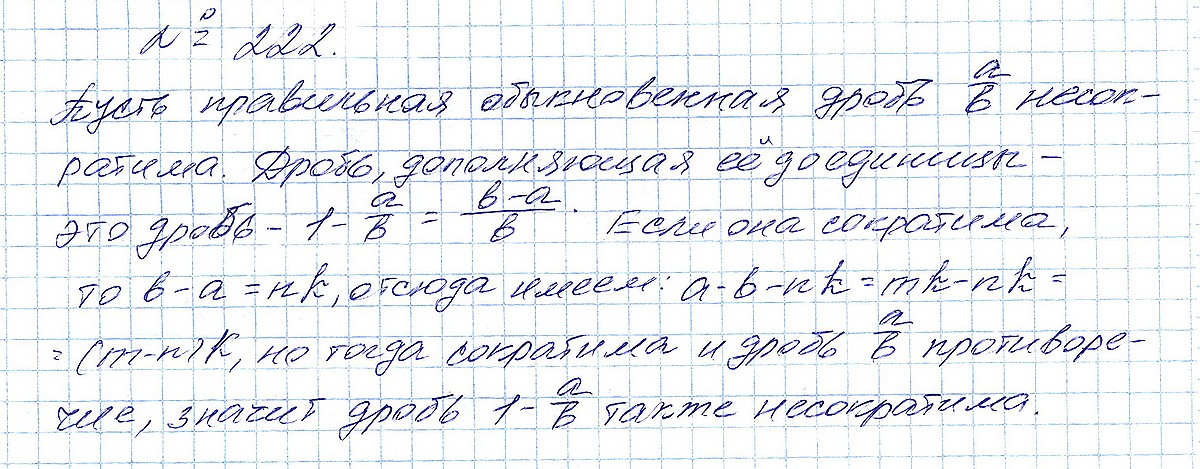 № 222.
Пусть правильная обыкновенная дробь a/b несок-
ратима. Дробь, дополняющая её до единицы -
это дробь - 1 - a/b = b-a/b. Если она сократима,
то b-a = nk, отсюда имеем: a-b-nk = mk-nk =
= (m-n)k, но тогда сократима и дробь a/b противоре-
чие, значит дробь 1 - a/b также несократима.